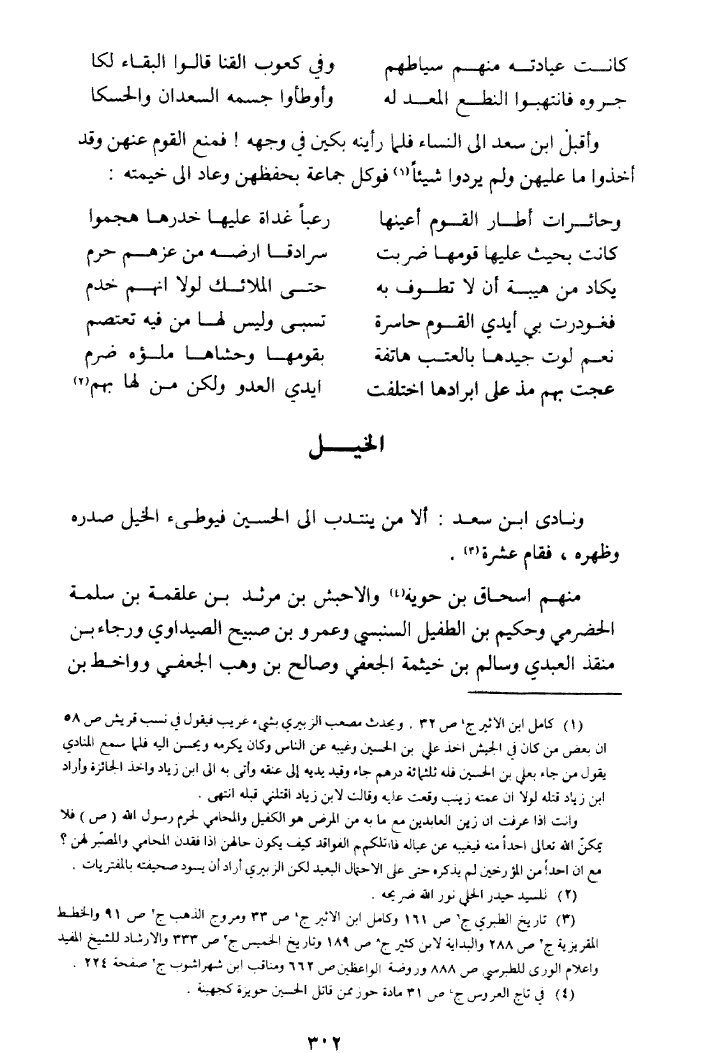 كانت عيادته منهم سياطهم وفي كعوب القنا قالوا البقاء لكا
جروه فانتهبوا النطع المعد له وأوطأوا جسمه السعدان والحسكا
وأقبل ابن سعد الى النساء فلما رأينه بكين في وجهه ! فمنع القوم عنهن وقد
أخذوا ما عليهن ولم يردوا شيئاً(١) فوكل جماعة بحفظهن وعاد الى خيمته :
وحائرات أطار القوم أعينها رعباً غداة عليها خدرها هجموا
كانت بحيث عليها قومها ضربت سرادقا ارضه من عزهم حرم
يكاد من هيبة أن لا تطوف به حتى الملائك لولا انهم خدم
فغودرت بي أيدي القوم حاسرة تسبى وليس لها من فيه تعتصم
نعم لوت جيدها بالعتب هاتفة بقومها وحشاها ملؤه ضرم
عجت بهم مذ على ابرادها اختلفت ايدي العدو ولكن من لها بهم(٢)
الخيل
ونادى ابن سعد : ألا من ينتدب الى الحسين فيوطىء الخيل صدره
وظهره ، فقام عشرة(٣) .
منهم اسحاق بن حوية(٤) والاحبش بن مرثد بن علقمة بن سلمة
الحضرمي وحكيم بن الطفيل السنبسي وعمرو بن صبيح الصيداوي ورجاء بن
منقذ العبدي وسالم بن خيثمة الجعفي وصالح بن وهب الجعفي وواخط بن
(١) كامل ابن الاثير ج٤ ص ٣٢ . ويحدث مصعب الزبيري بشيء غريب فيقول في نسب قريش ص ٥٨
ان بعض من كان في الجيش اخذ علي بن الحسين وغيبه عن الناس وكان يكرمه ويحسن اليه فلما سمع المنادي
يقول من جاء بعلي بن الحسين فله ثلثمائة درهم جاء وقيد يديه إلى عنقه وأتى به الى ابن زياد واخذ الجائزة وأراد
ابن زياد قتله لولا ان عمته زينب وقعت عليه وقالت لابن زياد اقتلني قبله انتهى .
وانت اذا عرفت ان زين العابدين مع ما به من المرض هو الكفيل والمحامي لحرم رسول الله ( ص ) فلا
يمكنّ الله تعالى احداً منه فيغيبه عن عياله الفواقد كيف يكون حالهن اذا فقدن المحامي والمصبّر لهن ؟
مع ان احداً من المؤرخين لم يذكره حتى على الاحتمال البعيد لكن الزبيري أراد أن يسود صحيفته بالمفتريات .
(٢) للسيد حيدر الحلي نور الله ضريحه .
(٣) تاريخ الطبري ج٦ ص ١٦١ وكامل ابن الاثير ج٤ ص ٣٣ ومروج الذهب ج٢ ص ٩١ والخطط
المقريزية ج٢ ص ٢٨٨ والبداية لابن كثير ج٨ ص ١٨٩ وتاريخ الخميس ج٢ ص ٣٣٣ والارشاد للشيخ المفيد
واعلام الورى للطبرسي ص ٨٨٨ وروضة الواعظين ص ٦٦٢ ومناقب ابن شهراشوب ج٢ صفحة ٢٢٤ .
(٤) في تاج العروس ج٤ ص ٣١ مادة حوز ممن قاتل الحسين حويزة كجهينة .
٣٠٢